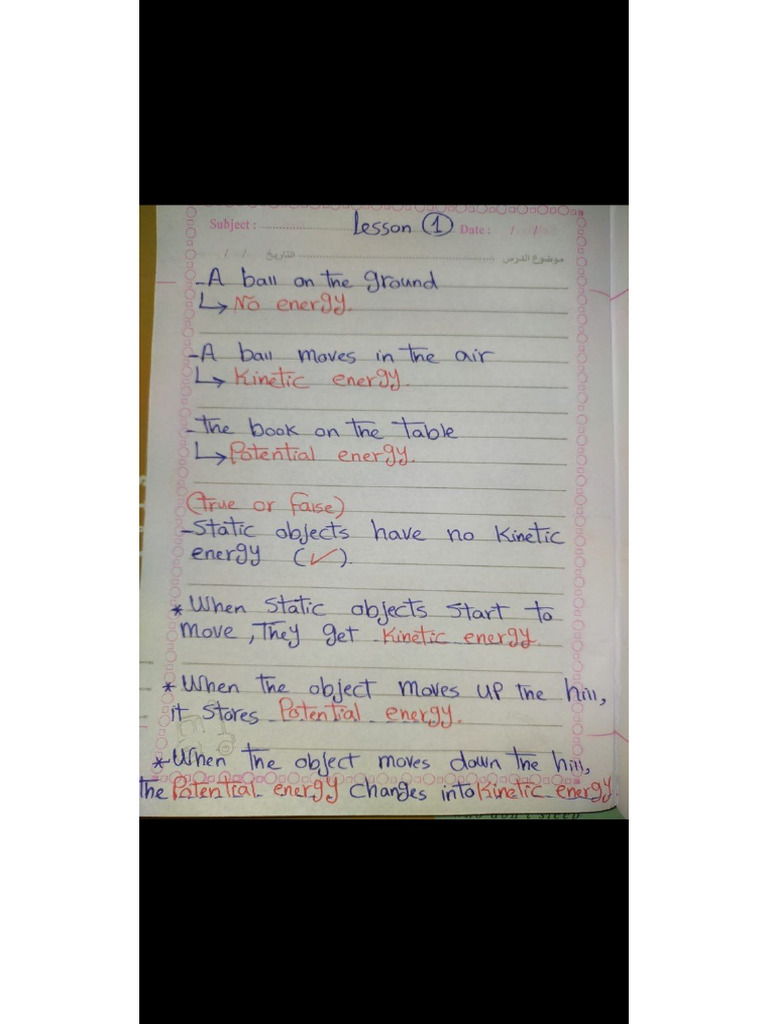 Subject : Lesson 1 Date : / /
موضوع الدرس التاريخ / /
- A ball on the ground
↳ No energy.
- A ball moves in the air
↳ Kinetic energy.
- The book on the table
↳ Potential energy.
(True or false)
- Static objects have no kinetic
energy (✓).
* When static objects start to
move, they get kinetic energy.
* When the object moves up the hill,
it stores Potential energy.
* When the object moves down the hill,
the Potential energy changes into kinetic energy.